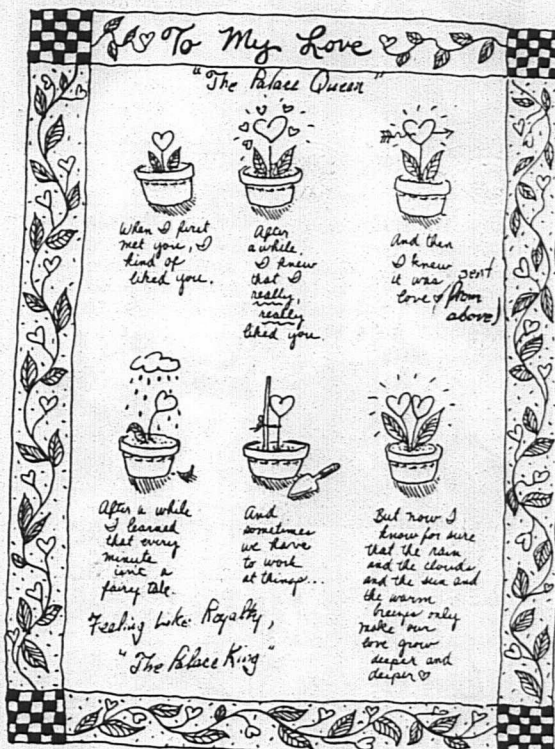 To My Love
"The Palace Queen"
When I first
met you, I
kind of
liked you.
After
awhile,
I knew
that I
really,
really
liked you.
And then
I knew
it was
love
(sent
from
above)
After a while
I learned
that every
minute
isn't a
fairy tale.
And
sometimes
we have
to work
at things...
But now I
know for sure
that the rain
and the clouds
and the sun and
the warm
breezes only
make our
love grow
deeper and
deeper ♡
Feeling Like Royalty,
"The Palace King"